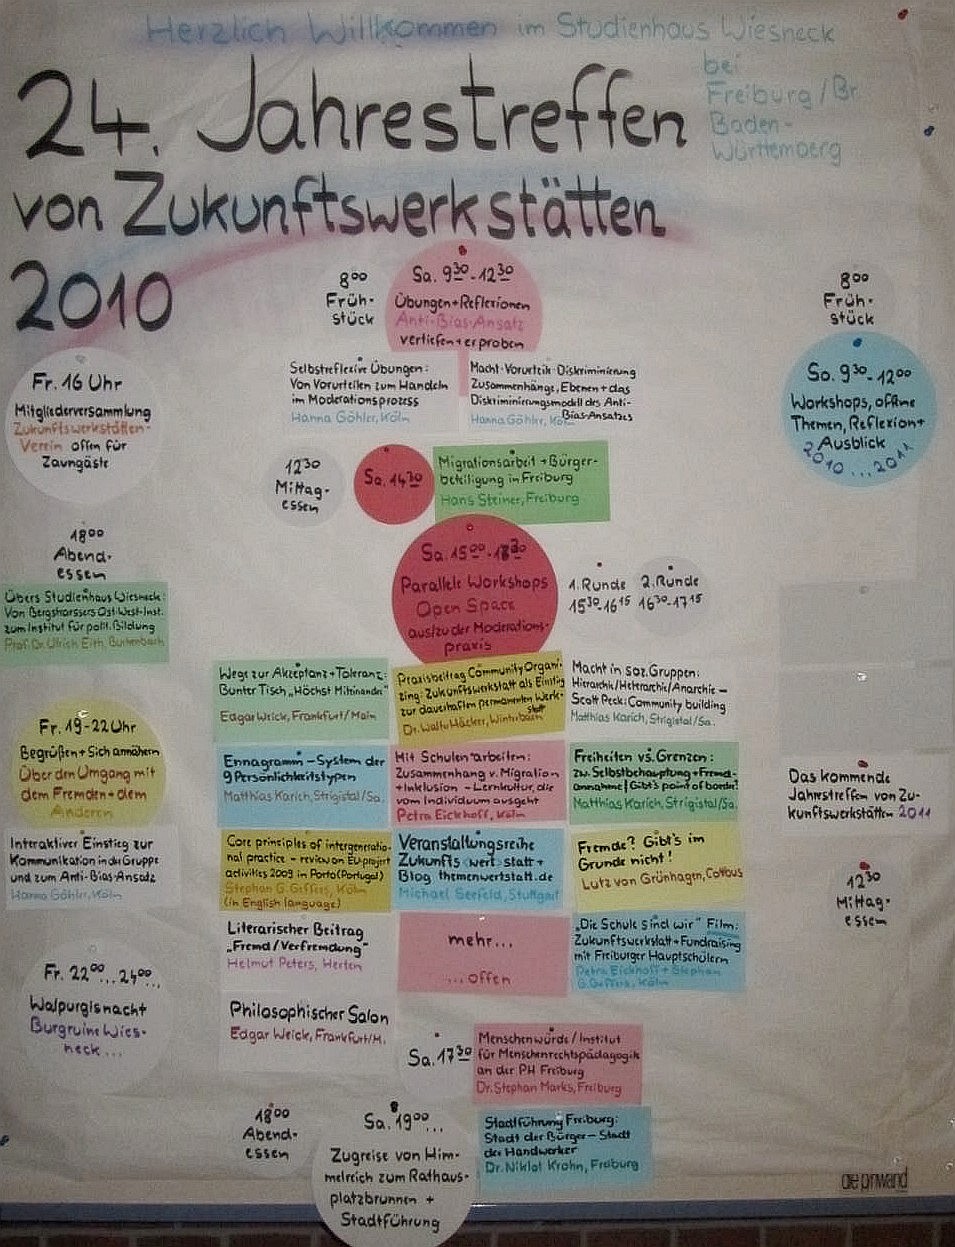 Herzlich Willkommen im Studienhaus Wiesneck
bei
Freiburg/Br.
Baden-
Württemberg
24. Jahrestreffen
von Zukunftswerkstätten
2010
Fr. 16 Uhr
Mitgliederversammlung
Zukunftswerkstätten-
Verein offen für
Zaungäste
18⁰⁰
Abend-
essen
Übers Studienhaus Wiesneck:
Von Bergstrassers Ost-West-Inst.
zum Institut für polit. Bildung
Prof. Dr. Ulrich Eith, Buchenbach
Fr. 19-22 Uhr
Begrüßen + Sich annähern
Über den Umgang mit
dem Fremden + dem
Anderen
Interaktiver Einstieg zur
Kommunikation in der Gruppe
und zum Anti-Bias-Ansatz
Hanna Göhler, Köln
Fr. 22⁰⁰...24⁰⁰...
Walpurgisnacht
Burgruine Wies-
neck...
8⁰⁰
Früh-
stück
Sa. 9³⁰-12³⁰
Übungen + Reflexionen
Anti-Bias-Ansatz
vertiefen + erproben
Selbstreflexive Übungen:
Von Vorurteilen zum Handeln
im Moderationsprozess
Hanna Göhler, Köln
Macht-Vorurteil-Diskriminierung
Zusammenhänge, Ebenen + das
Diskriminierungsmodell des Anti-
Bias-Ansatzes
Hanna Göhler, Köln
12³⁰
Mittag-
essen
Sa. 14³⁰
Migrationsarbeit + Bürger-
beteiligung in Freiburg
Hans Steiner, Freiburg
Sa. 15⁰⁰-18³⁰
Parallele Workshops
Open Space
aus/zu der Moderations-
praxis
1. Runde
15³⁰-16¹⁵
2. Runde
16³⁰-17¹⁵
Wege zur Akzeptanz + Toleranz:
Bunter Tisch „Höchst Miteinander"
Edgar Weick, Frankfurt/Main
Praxisbeitrag Community Organi-
zing: Zukunftswerkstatt als Einstieg
zur dauerhaften permanenten Werk-
statt
Dr. Walter Häcker, Winterbach
Macht in soz. Gruppen:
Hierarchie/Heterarchie/Anarchie -
Scott Peck: Community building
Matthias Karich, Strigistal/Sa.
Ennagramm - System der
9 Persönlichkeitstypen
Matthias Karich, Strigistal/Sa.
Mit Schulen arbeiten:
Zusammenhang v. Migration
+ Inklusion - Lernkultur, die
vom Individuum ausgeht
Petra Eickhoff, Köln
Freiheiten vs. Grenzen:
zw. Selbstbehauptung + Fremd-
annahme / Gibt's point of border?
Matthias Karich, Strigistal/Sa.
Core principles of intergeneratio-
nal practice - review on EU-project
activities 2009 in Porto (Portugal)
Stephan G. Geffers, Köln
(in English language)
Veranstaltungsreihe
Zukunfts<wert>statt +
Blog themenwertstatt.de
Michael Seefeld, Stuttgart
Fremde? Gibt's im
Grunde nicht!
Lutz von Grünhagen, Cottbus
Literarischer Beitrag
„Fremd/Verfremdung"
Helmut Peters, Herten
mehr...
...offen
„Die Schule sind wir" Film:
Zukunftswerkstatt + Fundraising
mit Freiburger Hauptschülern
Petra Eickhoff + Stephan
G. Geffers, Köln
Philosophischer Salon
Edgar Weick, Frankfurt/M.
Sa. 17³⁰
Menschenwürde / Institut
für Menschenrechtspädagogik
an der PH Freiburg
Dr. Stephan Marks, Freiburg
18⁰⁰
Abend-
essen
Sa. 19⁰⁰...
Zugreise von Him-
melreich zum Rathaus-
platzbrunnen +
Stadtführung
Stadtführung Freiburg:
Stadt der Bürger - Stadt
der Handwerker
Dr. Niklot Krohn, Freiburg
8⁰⁰
Früh-
stück
So. 9³⁰-12⁰⁰
Workshops, offene
Themen, Reflexion +
Ausblick
2010...2011
Das kommende
Jahrestreffen von Zu-
kunftswerkstätten 2011
12³⁰
Mittag-
essen
die pinwand